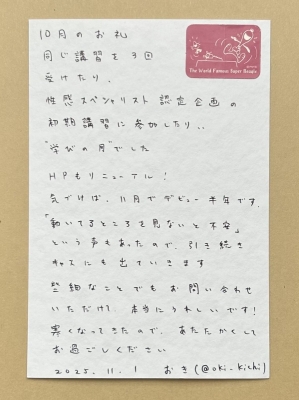 10月のお礼
The World Famous Super Beagle
同じ講習を3回
受けたり、
性感スペシャリスト 認定企画の
初期講習に参加したり、、
"学びの月"でした
HPもリニューアル！
気づけば、11月でデビュー半年です。
「動いてるところを見ないと不安」
という声もあったので、引き続き
キャスにも出ていきます
些細なことでもお問い合わせ
いただけて 本当にうれしいです！
寒くなってきたので、あたたかくして
お過ごしください
2025.11.1 おき(@oki_kichi)